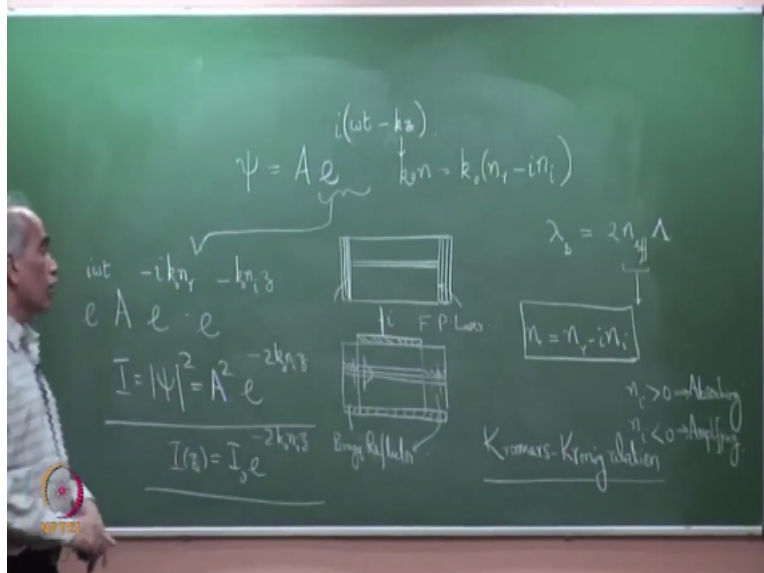 i(ωt − kz)
ψ = A e
k₀n = k₀(nᵣ − i nᵢ)
iωt −ik₀nᵣ −k₀nᵢz
e A e · e
I = |ψ|² = A² e^−2k₀nᵢz
I(z) = I₀ e^−2k₀nᵢz
i F P Laser
Bragg Reflector
λ_b = 2n_eff Λ
n = nᵣ − i nᵢ
nᵢ > 0 → Absorbing
nᵢ < 0 → Amplifying
Kramars-Kronig relation
NPTEL